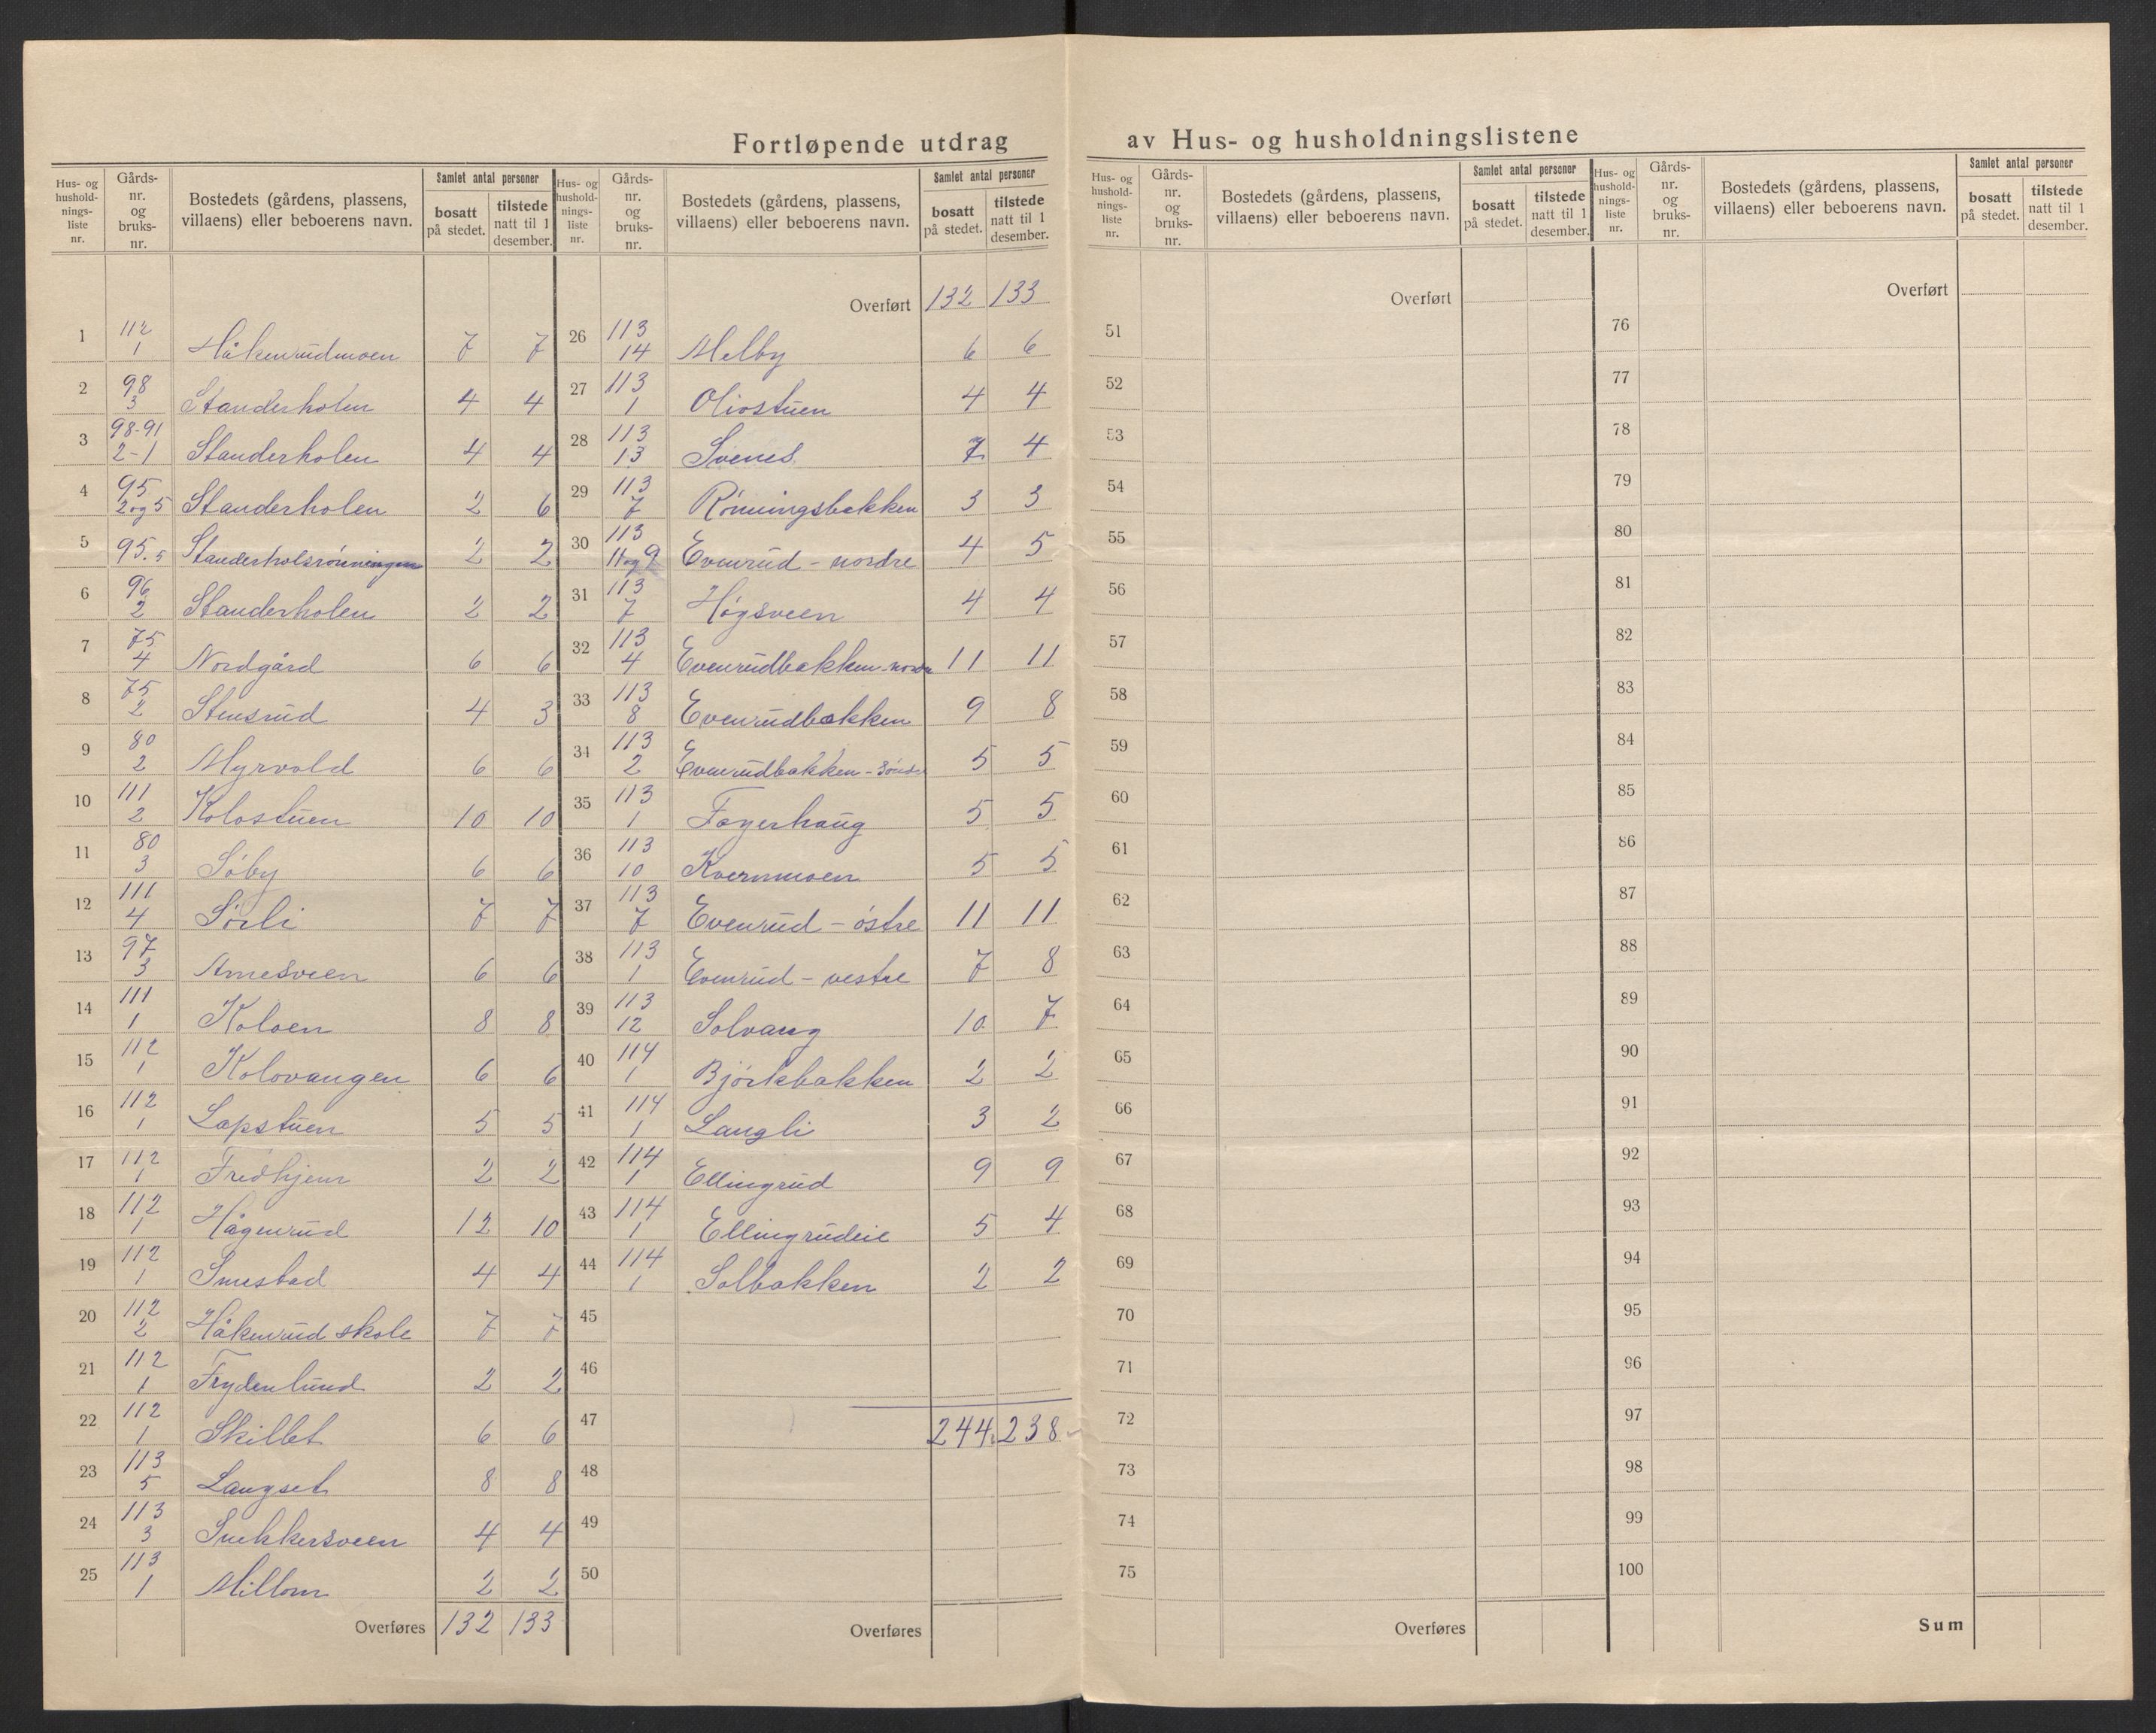 Fortløpende utdrag av Hus- og husholdningslistene
Hus- og husholdnings-liste nr. | Gårds-nr. og bruks-nr. | Bostedets (gårdens, plassens, villaens) eller beboerens navn. | Samlet antal personer | bosatt på stedet. | tilstede natt til 1 desember.
1 | 112 1 | Håkenrudmoen | 7 | 7
2 | 98 3 | Standerholen | 4 | 4
3 | 98-91 2-1 | Standerholen | 4 | 4
4 | 95 2og5 | Standerholen | 2 | 6
5 | 95.5 | Standerholsrönningen | 2 | 2
6 | 96 2 | Standerholen | 2 | 2
7 | 75 4 | Nordgård | 6 | 6
8 | 75 2 | Stensrud | 4 | 3
9 | 80 2 | Myrvold | 6 | 6
10 | 111 2 | Kolostuen | 10 | 10
11 | 80 3 | Söby | 6 | 6
12 | 111 4 | Sörli | 7 | 7
13 | 97 3 | Arnesveen | 6 | 6
14 | 111 1 | Koloen | 8 | 8
15 | 112 1 | Kolovangen | 6 | 6
16 | 112 1 | Lapstuen | 5 | 5
17 | 112 1 | Fredhjem | 2 | 2
18 | 112 1 | Hågenrud | 12 | 10
19 | 112 1 | Smestad | 4 | 4
20 | 112 2 | Håkenrud skole | 7 | 7
21 | 112 1 | Frydenlund | 2 | 2
22 | 112 1 | Skillet | 6 | 6
23 | 113 5 | Langset | 8 | 8
24 | 113 3 | Snekkersveen | 4 | 4
25 | 113 1 | Millom | 2 | 2
Overføres | 132 | 133
Hus- og husholdnings-liste nr. | Gårds-nr. og bruks-nr. | Bostedets (gårdens, plassens, villaens) eller beboerens navn. | Samlet antal personer | bosatt på stedet. | tilstede natt til 1 desember.
Overført | 132 | 133
26 | 113 14 | Melby | 6 | 6
27 | 113 1 | Oliostuen | 4 | 4
28 | 113 13 | Svenes | 7 | 4
29 | 113 7 | Rönningsbakken | 3 | 3
30 | 113 11og9 | Evenrud - nordre | 4 | 5
31 | 113 7 | Högsveen | 4 | 4
32 | 113 4 | Evenrudbakken-nordre | 11 | 11
33 | 113 8 | Evenrudbakken | 9 | 8
34 | 113 2 | Evenrudbakken - söndre | 5 | 5
35 | 113 1 | Fagerhaug | 5 | 5
36 | 113 10 | Kvernmoen | 5 | 5
37 | 113 7 | Evenrud - östre | 11 | 11
38 | 113 1 | Evenrud - vestre | 7 | 8
39 | 113 12 | Solvang | 10 | 7
40 | 114 1 | Björkbakken | 2 | 2
41 | 114 1 | Langli | 3 | 2
42 | 114 1 | Ellingrud | 9 | 9
43 | 114 1 | Ellingrudeie | 5 | 4
44 | 114 1 | Solbakken | 2 | 2
45
46
47 | 244 | 238
48
49
50
Overføres
Hus- og husholdnings-liste nr. | Gårds-nr. og bruks-nr. | Bostedets (gårdens, plassens, villaens) eller beboerens navn. | Samlet antal personer | bosatt på stedet. | tilstede natt til 1 desember.
Overført
51
52
53
54
55
56
57
58
59
60
61
62
63
64
65
66
67
68
69
70
71
72
73
74
75
Overføres
Hus- og husholdnings-liste nr. | Gårds-nr. og bruks-nr. | Bostedets (gårdens, plassens, villaens) eller beboerens navn. | Samlet antal personer | bosatt på stedet. | tilstede natt til 1 desember.
Overført
76
77
78
79
80
81
82
83
84
85
86
87
88
89
90
91
92
93
94
95
96
97
98
99
100
Sum